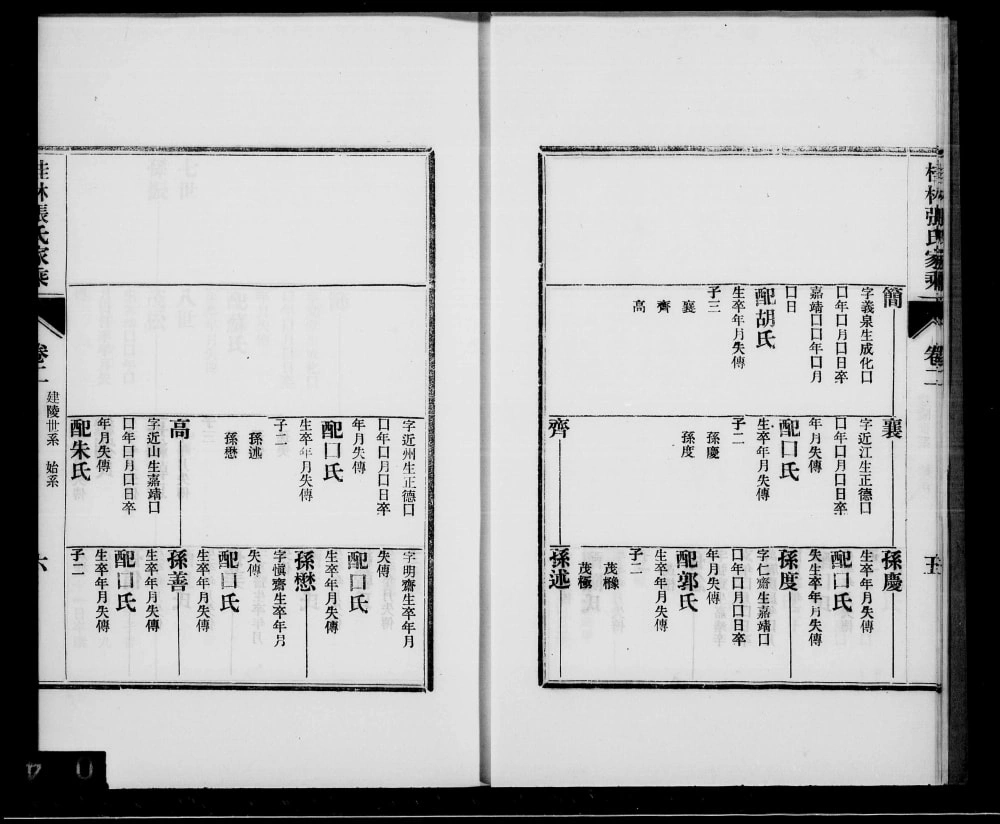 桂林張氏家乘
卷二
五
簡
字義泉生成化口
口年口月口日卒
嘉靖口口年口月
口日
配胡氏
生卒年月失傳
子三
襄
齊
高
襄
字近江生正德口
口年口月口日卒
年月失傳
配口氏
生卒年月失傳
子二
孫慶
孫度
齊
孫慶
生卒年月失傳
配口氏
失生卒年月失傳
孫度
字仁齋生嘉靖口
口年口月口日卒
年月失傳
配郭氏
生卒年月失傳
子二
茂橡
茂極
孫述
字近州生正德口
口年口月口日卒
年月失傳
配口氏
生卒年月失傳
子二
孫述
孫懋
高
字近山生嘉靖口
口年口月口日卒
年月失傳
配朱氏
字明齋生卒年月
失傳
配口氏
生卒年月失傳
孫懋
字愼齋生卒年月
失傳
配口氏
生卒年月失傳
孫善
生卒年月失傳
配口氏
生卒年月失傳
子二
桂林張氏家乘
卷二
建陵世系 始系
六